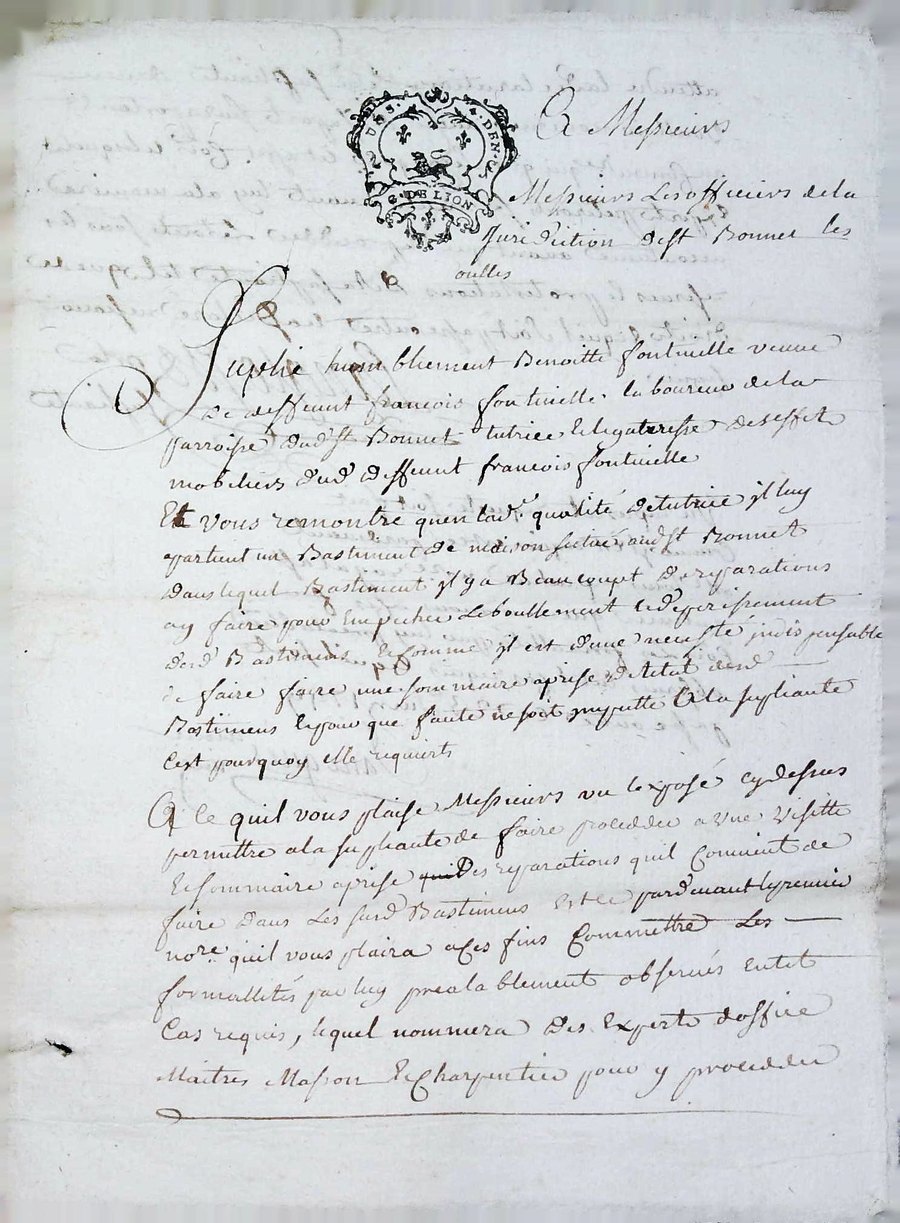 A Messieurs
Messieurs Les officiers de la
Juridiction de st Bonnet les
oulles
G. DE LION
Suplie humbliement Benoitte fontvielle veuve
de deffeunt françois fontvielle laboureur de la
parroisse dud. st Bonnet tutrice & legateresse des effets
mobiliers dud. deffeunt françois fontvielle
Et vous remontre quen lad. qualité de tutrice jl luy
apartient un Bastiment de maison scitué aud. st Bonnet
dans lequel Bastiment jl y a Beaucoupt de reparations
ay faire pour Empecher Leboullement & deperissement
desd. Bastimens & comme jl est dune necessté jndispensable
de faire faire une sommaire aprise de létat desd.
Bastimens & pour que faute ne soit jmputté a la supliante
Cest pourquoy elle requiert
A Ce quil vous plaise Messieurs vu lexposé cy dessus
permettre a la supliante de faire proceder a une visitte
& sommaire aprise des reparations quil Convient de
faire dans Les susd. Bastimens & ce pardevant le premier
nore. quil vous plaira a Ces fins Commettre Les
formallités par luy prealablement observés en tel
Cas requis, lequel nommera des Experts doffice
Maitres Masson & Charpentier pour y proceder